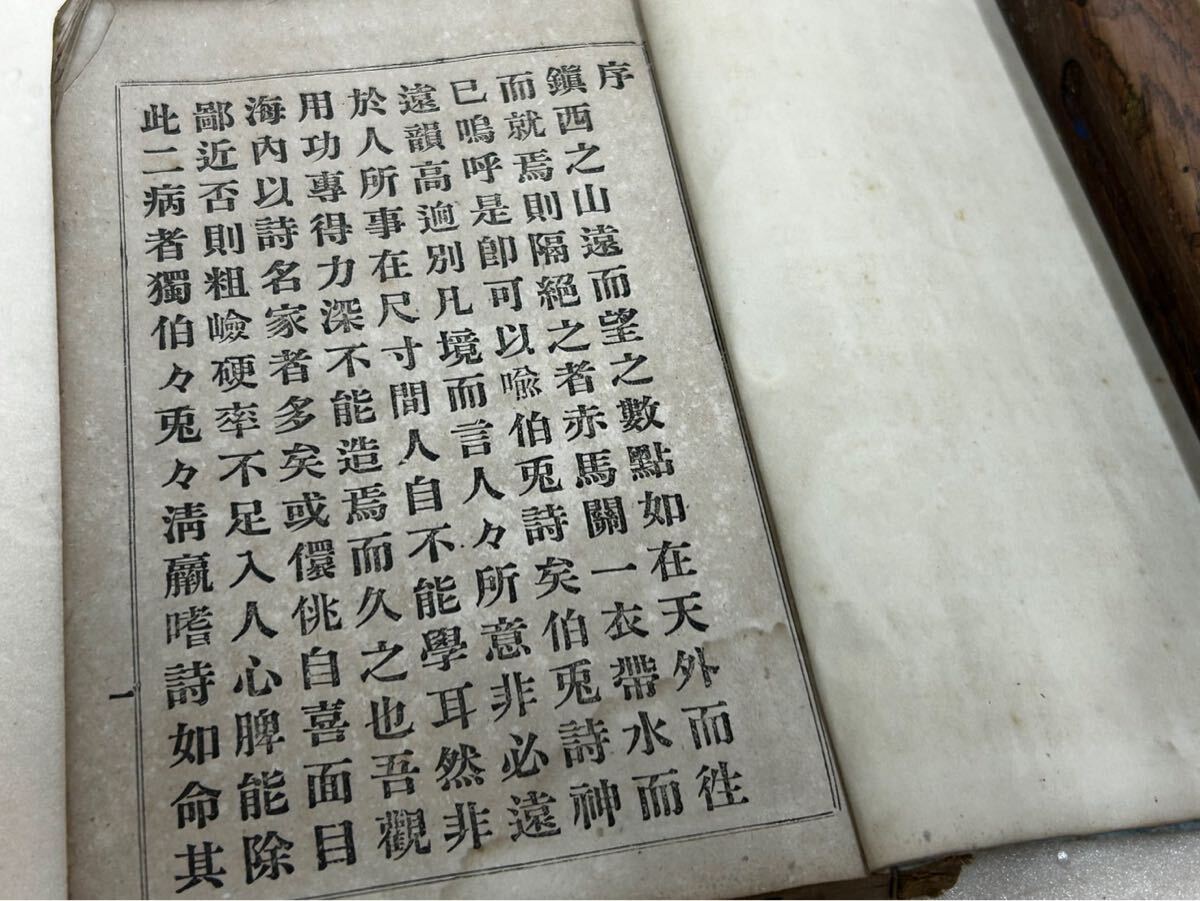 序
鎭西之山遠而望之數點如在天外而徃
而就焉則隔絶之者赤馬關一衣帶水而
已嗚呼是卽可以喩伯兎詩矣伯兎詩神
遠韻高逈別凡境而言人々所意非必遠
於人所事在尺寸間人自不能學耳然非
用功專得力深不能造焉而久之也吾觀
海內以詩名家者多矣或儇佻自喜面目
鄙近否則粗嶮硬率不足入人心脾能除
此二病者獨伯々兎々淸羸嗜詩如命其
一